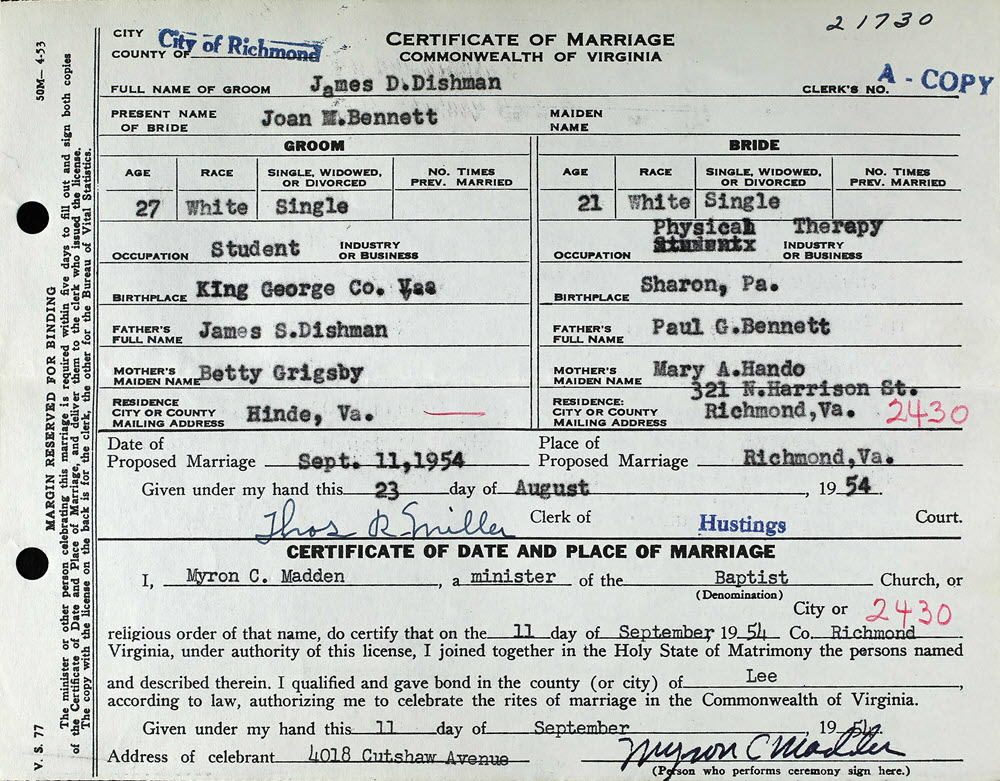 21730
CITY
COUNTY OF City of Richmond
CERTIFICATE OF MARRIAGE
COMMONWEALTH OF VIRGINIA
FULL NAME OF GROOM James D.Dishman CLERK'S NO. A - COPY
PRESENT NAME OF BRIDE Joan M.Bennett MAIDEN NAME
GROOM BRIDE
AGE RACE SINGLE, WIDOWED, OR DIVORCED NO. TIMES PREV. MARRIED AGE RACE SINGLE, WIDOWED, OR DIVORCED NO. TIMES PREV. MARRIED
27 White Single 21 White Single
OCCUPATION Student INDUSTRY OR BUSINESS OCCUPATION Physical Therapy INDUSTRY OR BUSINESS
BIRTHPLACE King George Co. BIRTHPLACE Sharon, Pa.
FATHER'S FULL NAME James S.Dishman FATHER'S FULL NAME Paul G.Bennett
MOTHER'S MAIDEN NAME Betty Grigsby MOTHER'S MAIDEN NAME Mary A.Hando
321 N.Harrison St.
RESIDENCE CITY OR COUNTY MAILING ADDRESS Hinde, Va. RESIDENCE: CITY OR COUNTY MAILING ADDRESS Richmond,Va. 2430
Date of Proposed Marriage Sept. 11,1954 Place of Proposed Marriage Richmond,Va.
Given under my hand this 23 day of August , 19 54.
Thos R Miller Clerk of Hustings Court.
CERTIFICATE OF DATE AND PLACE OF MARRIAGE
I, Myron C. Madden , a minister of the Baptist Church, or
(Denomination)
City or 2430
religious order of that name, do certify that on the 11 day of September 19 54 Co. Richmond
Virginia, under authority of this license, I joined together in the Holy State of Matrimony the persons named
and described therein. I qualified and gave bond in the county (or city) of Lee ,
according to law, authorizing me to celebrate the rites of marriage in the Commonwealth of Virginia.
Given under my hand this 11 day of September 19 54.
Address of celebrant 4018 Cutshaw Avenue Myron C Madden
(Person who performs ceremony sign here.)
50M— 4-53
MARGIN RESERVED FOR BINDING
The minister or other person celebrating this marriage is required within five days to fill out and sign both copies
of the Certificate of Date and Place of Marriage, and deliver them to the clerk who issued the license.
The copy with the license on the back is for the clerk, the other for the Bureau of Vital Statistics.
V. S. 77